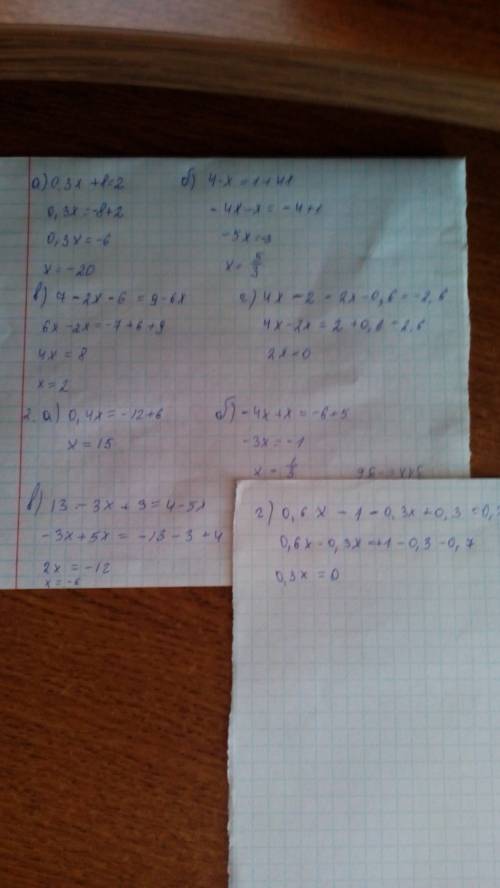 а) 0,3x + 8 = 2
0,3x = -8+2
0,3x = -6
x = -20
б) 4-x = 1+4x
-4x-x = -4+1
-5x = -3
x = 5/3
в) 7 - 2x - 6 = 9 - 6x
6x - 2x = -7+6+9
4x = 8
x = 2
г) 4x - 2 - 2x - 0,6 = -2,6
4x - 2x = 2 + 0,6 - 2,6
2x = 0
2. а) 0,4x = -12+6
x = 15
б) -4x + x = -6+5
-3x = -1
x = 1/3
в) 13 - 3x + 3 = 4 - 5x
-3x + 5x = -13 - 3 + 4
2x = -12
x = -6
г) 0,6x - 1 - 0,3x + 0,3 =
0,6x - 0,3x = +1 - 0,3 - 0,7
0,3x = 0